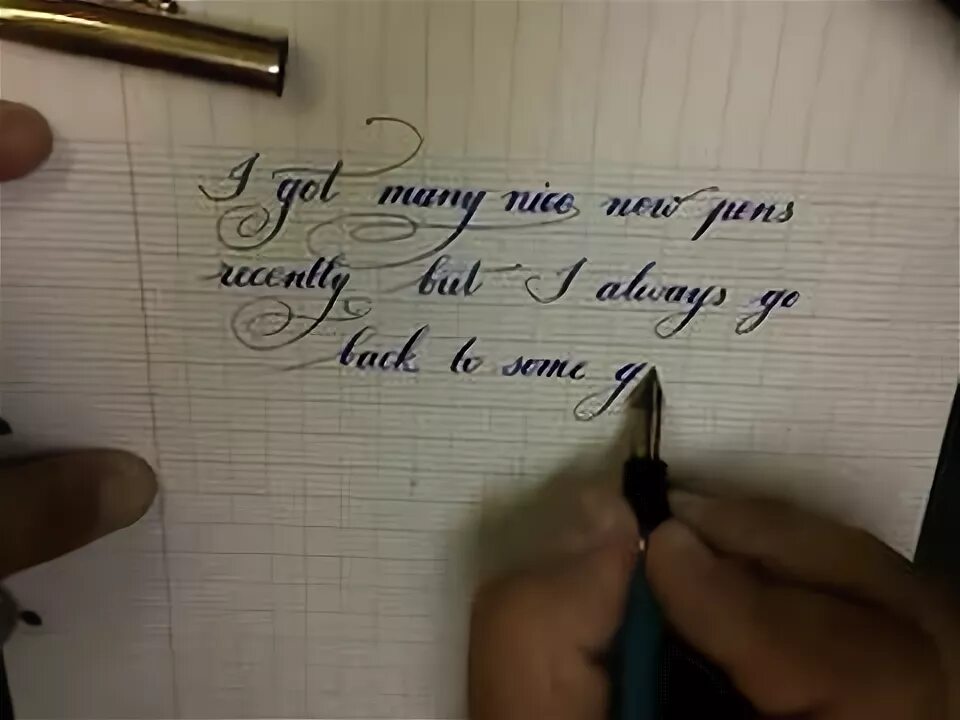 I got many nice new pens
recently but I always go
back to some g